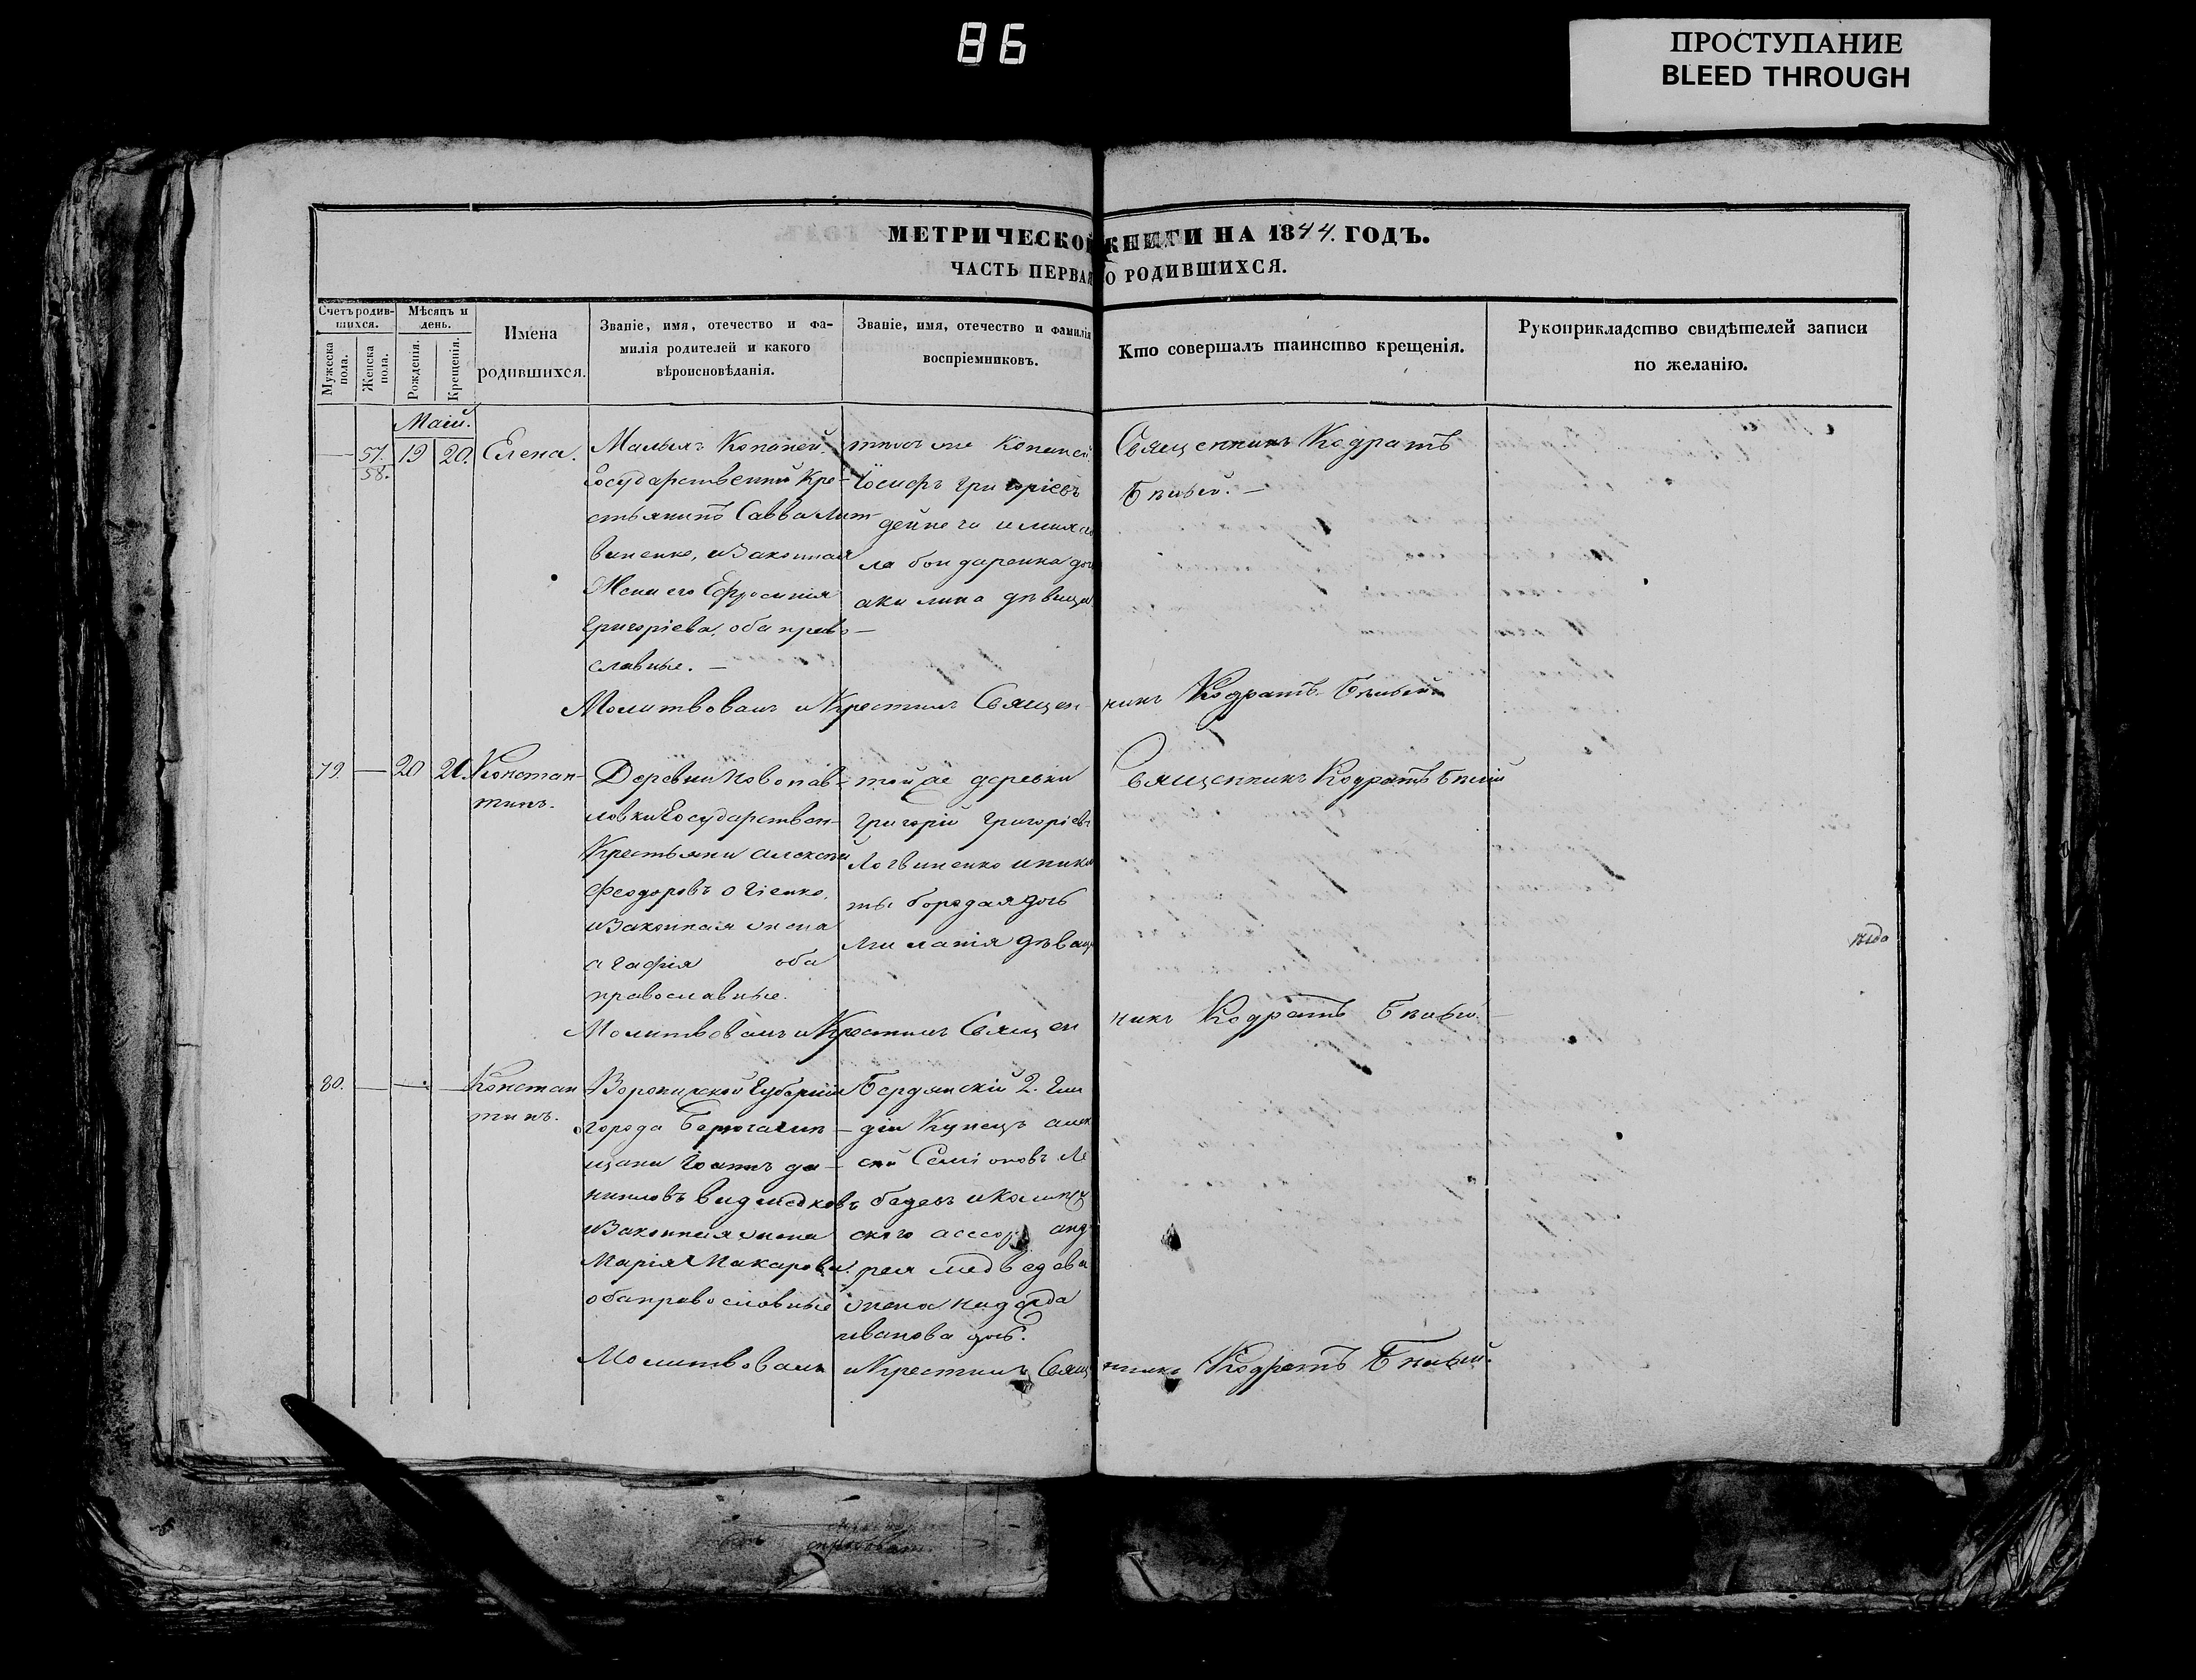 86
ПРОСТУПАНИЕ
BLEED THROUGH
МЕТРИЧЕСКОЙ КНИГИ НА 1844. ГОДЪ.
ЧАСТЬ ПЕРВАЯ О РОДИВШИХСЯ.
Счетъ родив-
шихся.
Мужеска
пола.
Женска
пола.
Мѣсяцъ и
день.
Рожденія.
Крещенія.
Имена
родившихся.
Званіе, имя, отечество и фа-
милія родителей и какого
вѣроисповѣданія.
Званіе, имя, отечество и фамилія
воспріемниковъ.
Кто совершалъ таинство крещенія.
Рукоприкладство свидѣтелей записи
по желанію.
Маій.
57.
58.
19
20.
Елена.
Малыхъ Копаней.
Государственный Кре-
стьянинъ Савва Лит-
виненко, и Законная
Жена его Ефросинія
Григоріева, оба право-
славные. —
тѣхъ же Копаней
Іосифъ Григоріевъ
дейнега и Михаи
ла бондаренка доч
акилина дѣвица
Священникъ Кодратъ
Бѣлый. —
Молитвовалъ и Крестилъ Священ-
никъ Кодратъ Бѣлый.
79.
—
20
21.
Констан-
тинъ.
Деревни Новопав-
ловки Государствен-
Крестьяни алексей
Феодоровъ Огіенко,
и Законная жена
агафія оба
православные.
той же деревни
Григорій Григоріевъ
Логвиненко и ники
ты бородая дочь
Меланія дѣвица
Священникъ Кодратъ Бѣлый
Молитвовалъ и Крестилъ Священ
никъ Кодратъ Бѣлый. —
80.
—
—
—
Констан
тинъ.
Воронежской Губерніи
города Бирюча мѣ-
щани Іоаннъ да-
ниловъ
и Законная жена
Марія Макарова.
оба православные
Бердянскій 2. Гил
діи Купецъ алек
сѣй Семіоновъ Ле
бедевъ и Коллеж
скаго ассесор анд
рея медведева
жена надежда
иванова дочь.
Молитвовалъ и Крестилъ Свящ
нникъ Кодратъ Бѣлый.